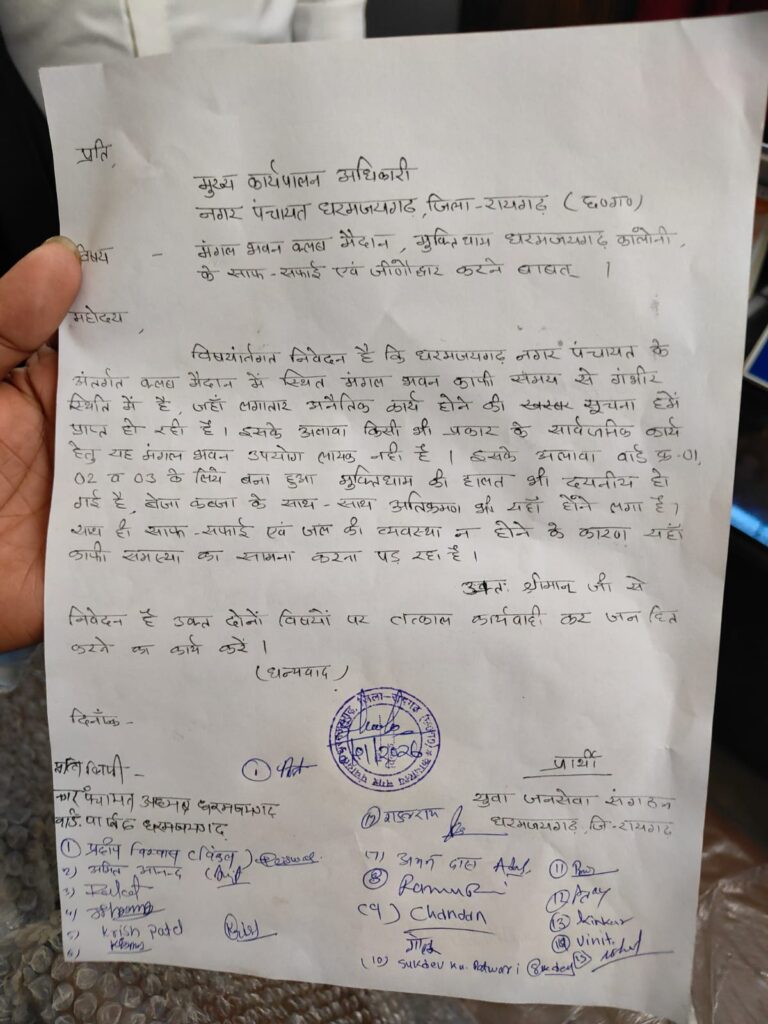 प्रति,
मुख्य कार्यपालन अधिकारी
नगर पंचायत धरमजयगढ़, जिला-रायगढ़ (छ०ग०)
विषय - मंगल भवन क्लब मैदान, मुक्तिधाम धरमजयगढ़ कालोनी,
के साफ-सफाई एवं जीर्णोद्धार करने बाबत् ।
महोदय,
विषयांर्तगत निवेदन है कि धरमजयगढ़ नगर पंचायत के
अंतर्गत क्लब मैदान में स्थित मंगल भवन काफी समय से गंभीर
स्थिति में है, जहाँ लगातार अनैतिक कार्य होने की सूचना हमें
प्राप्त हो रही है। इसके अलावा किसी भी प्रकार के सार्वजनिक कार्य
हेतु यह मंगल भवन उपयोग लायक नहीं है । इसके अलावा वार्ड क्र-01,
02 व 03 के लिये बना हुआ मुक्तिधाम की हालत भी दयनीय हो
गई है, बेजा कब्जा के साथ-साथ अतिक्रमण भी यहाँ होने लगा है।
साथ ही साफ-सफाई एवं जल की व्यवस्था न होने के कारण यहाँ
काफी समस्या का सामना करना पड़ रहा है ।
श्रीमान् जी से
निवेदन है उक्त दोनों विषयों पर तत्काल कार्यवाही कर जन हित
करने का कार्य करें ।
(धन्यवाद)
दिनाँक-
प्रतिलिपी -
प्रार्थी
पंचायत अध्यक्ष धरमजयगढ़
युवा जनसेवा संगठन
वार्ड पार्षद धरमजयगढ़
धरमजयगढ़, जि-रायगढ़
① प्रदीप
2)
3)
4)
5) Krish Patel
6)
(7)
⑧
(9) Chandan
(10) Sukdev
⑪
⑫ Ajay
⑬ Kinkar
⑭ Vinit
⑮